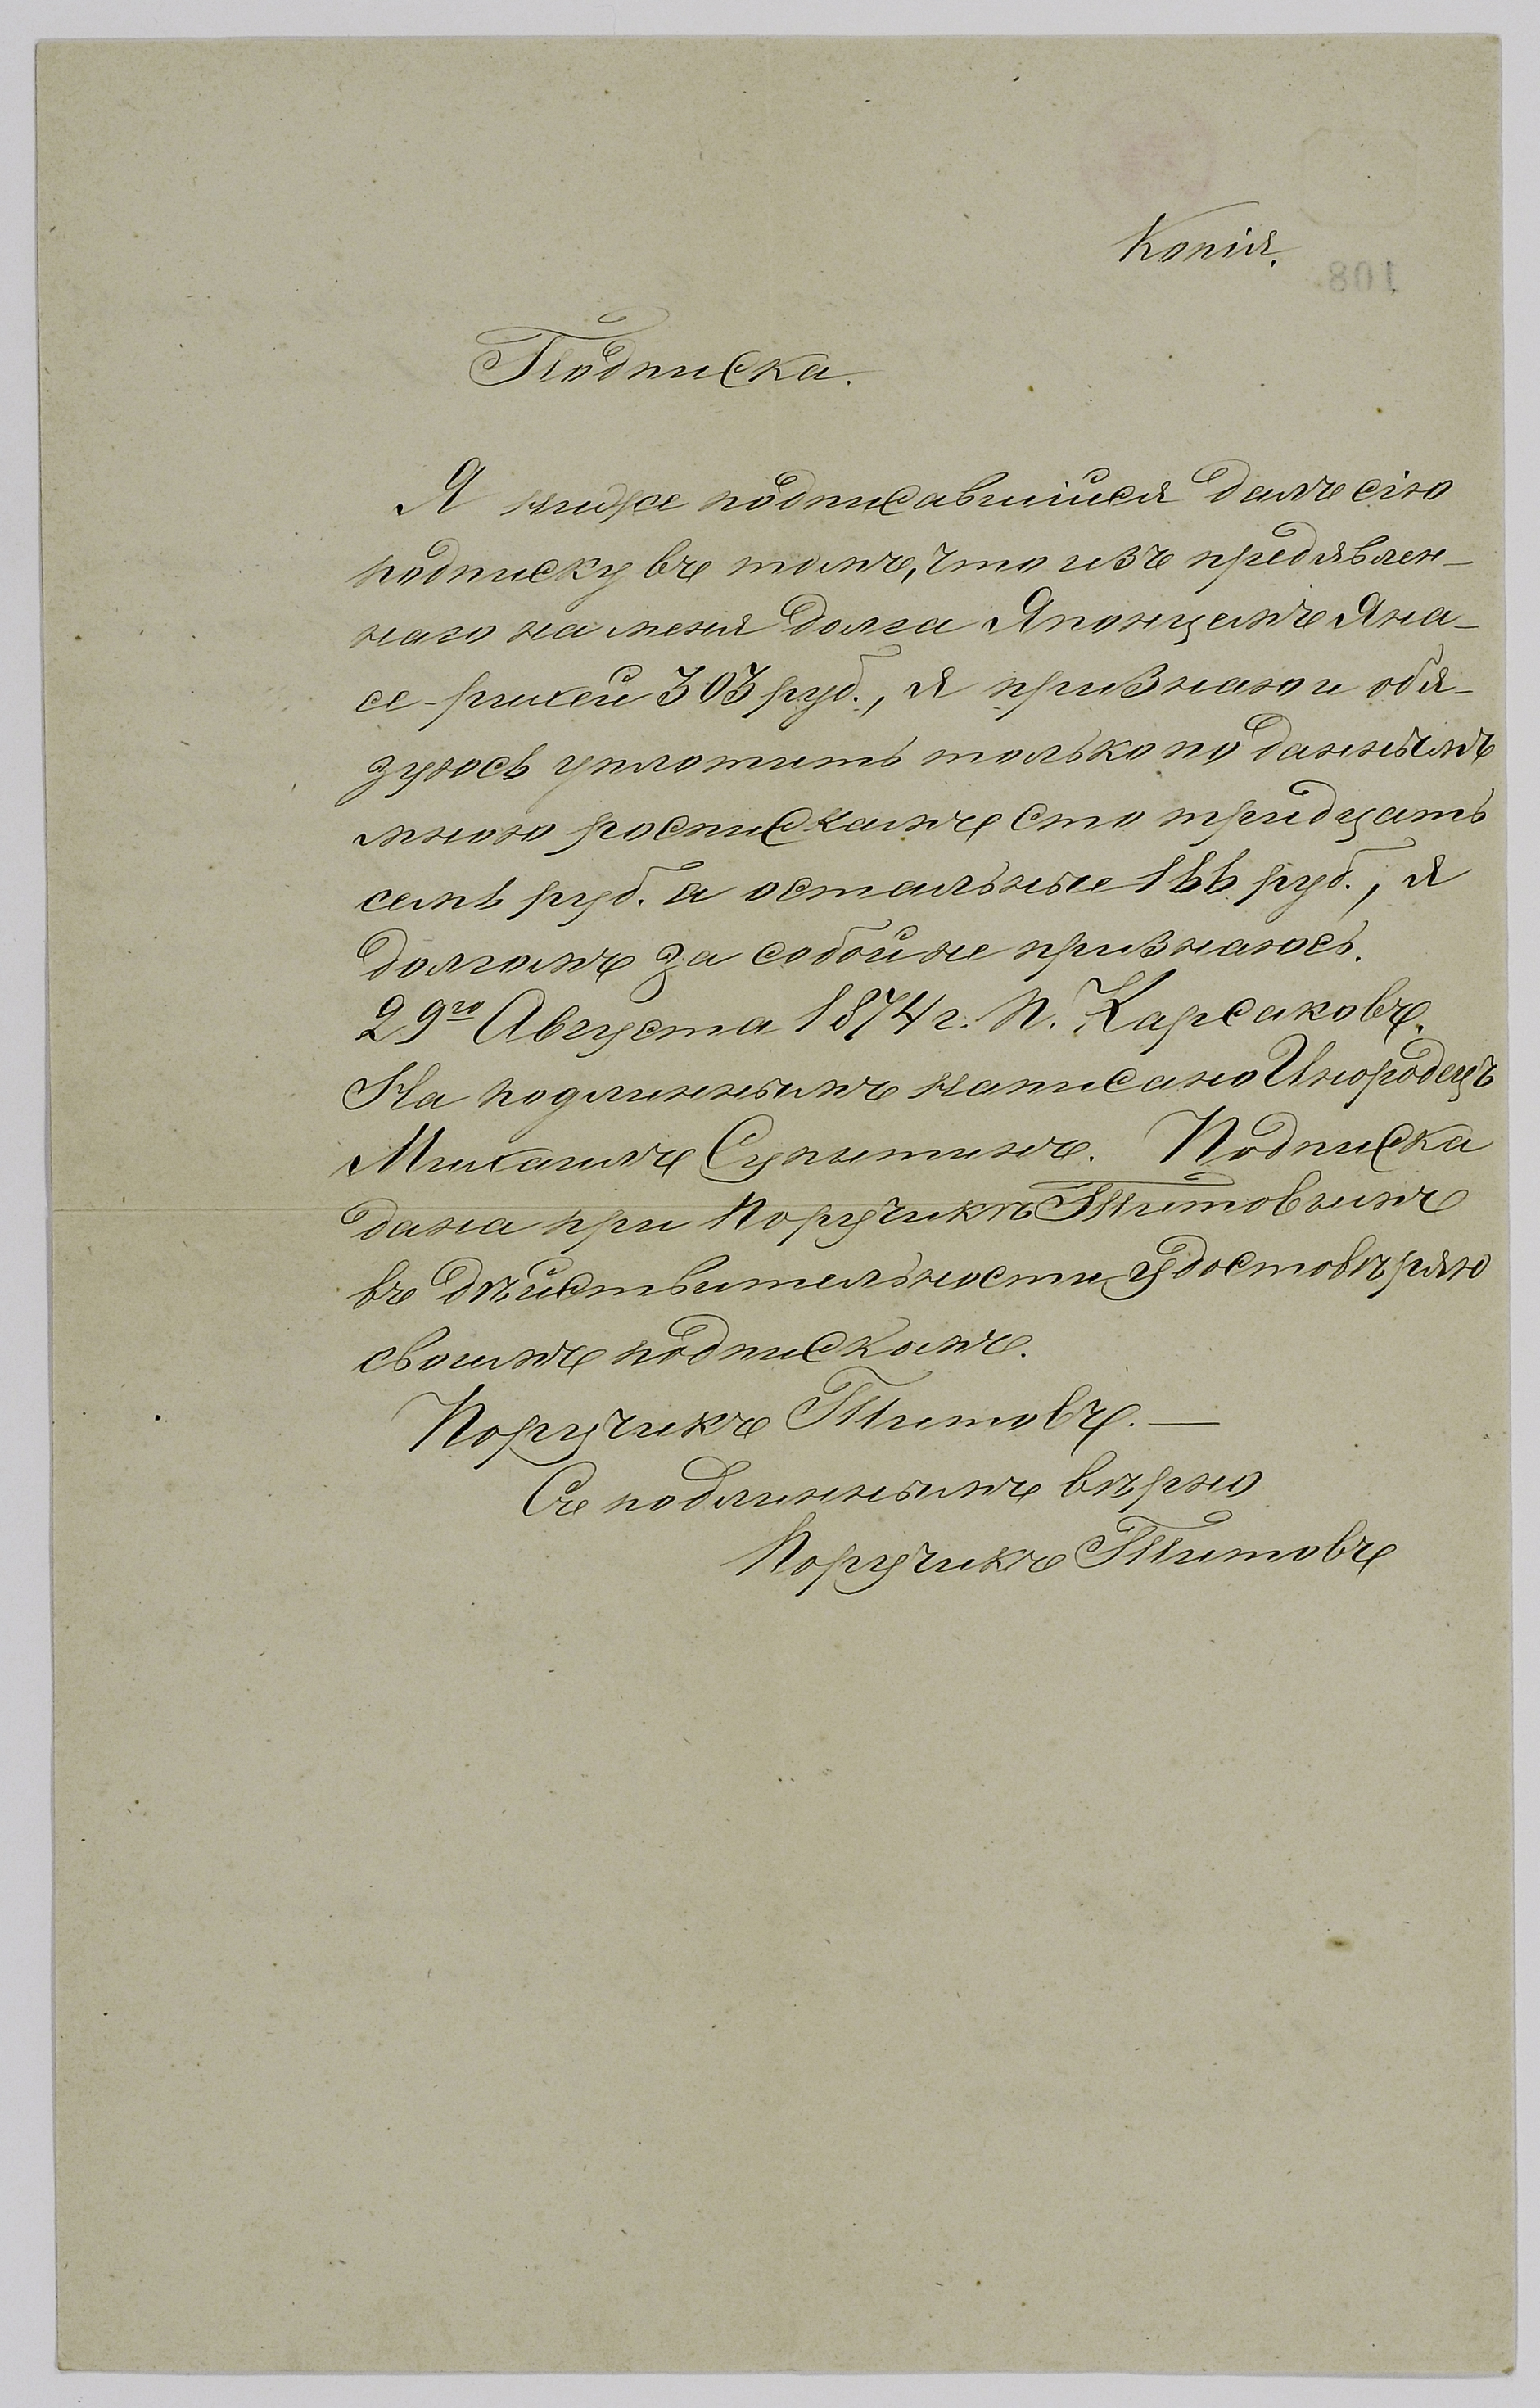 Копія.
108
Подписка.
Я ниже подписавшійся далъ сію
подписку въ томъ, что изъ предявлен-
наго на меня долга Японцемъ Яна-
се-рихей 303 руб., я признаю и обя-
зуюсь уплотить только по даннымъ
мною роспискамъ сто тридцать
семь руб. а остальные 166 руб., я
долгомъ за собой не признаюсь.
29го Августа 1874 г. П. Карсаковъ.
На подлинномъ написано Инородецъ
Михаилъ Супытинъ. Подписка
дана при Поручикѣ Титовымъ
въ дѣйствительности удостовѣряю
своимъ подпискомъ.
Поручикъ Титовъ.—
Съ подлиннымъ вѣрно
Поручикъ Титовъ